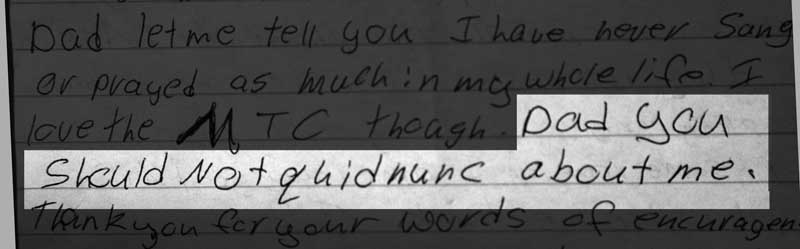 Dad let me tell you I have never Sang
or prayed as much in my whole life. I
love the MTC though. Dad you
Should Not quidnunc about me.
Thank you for your words of encuragem